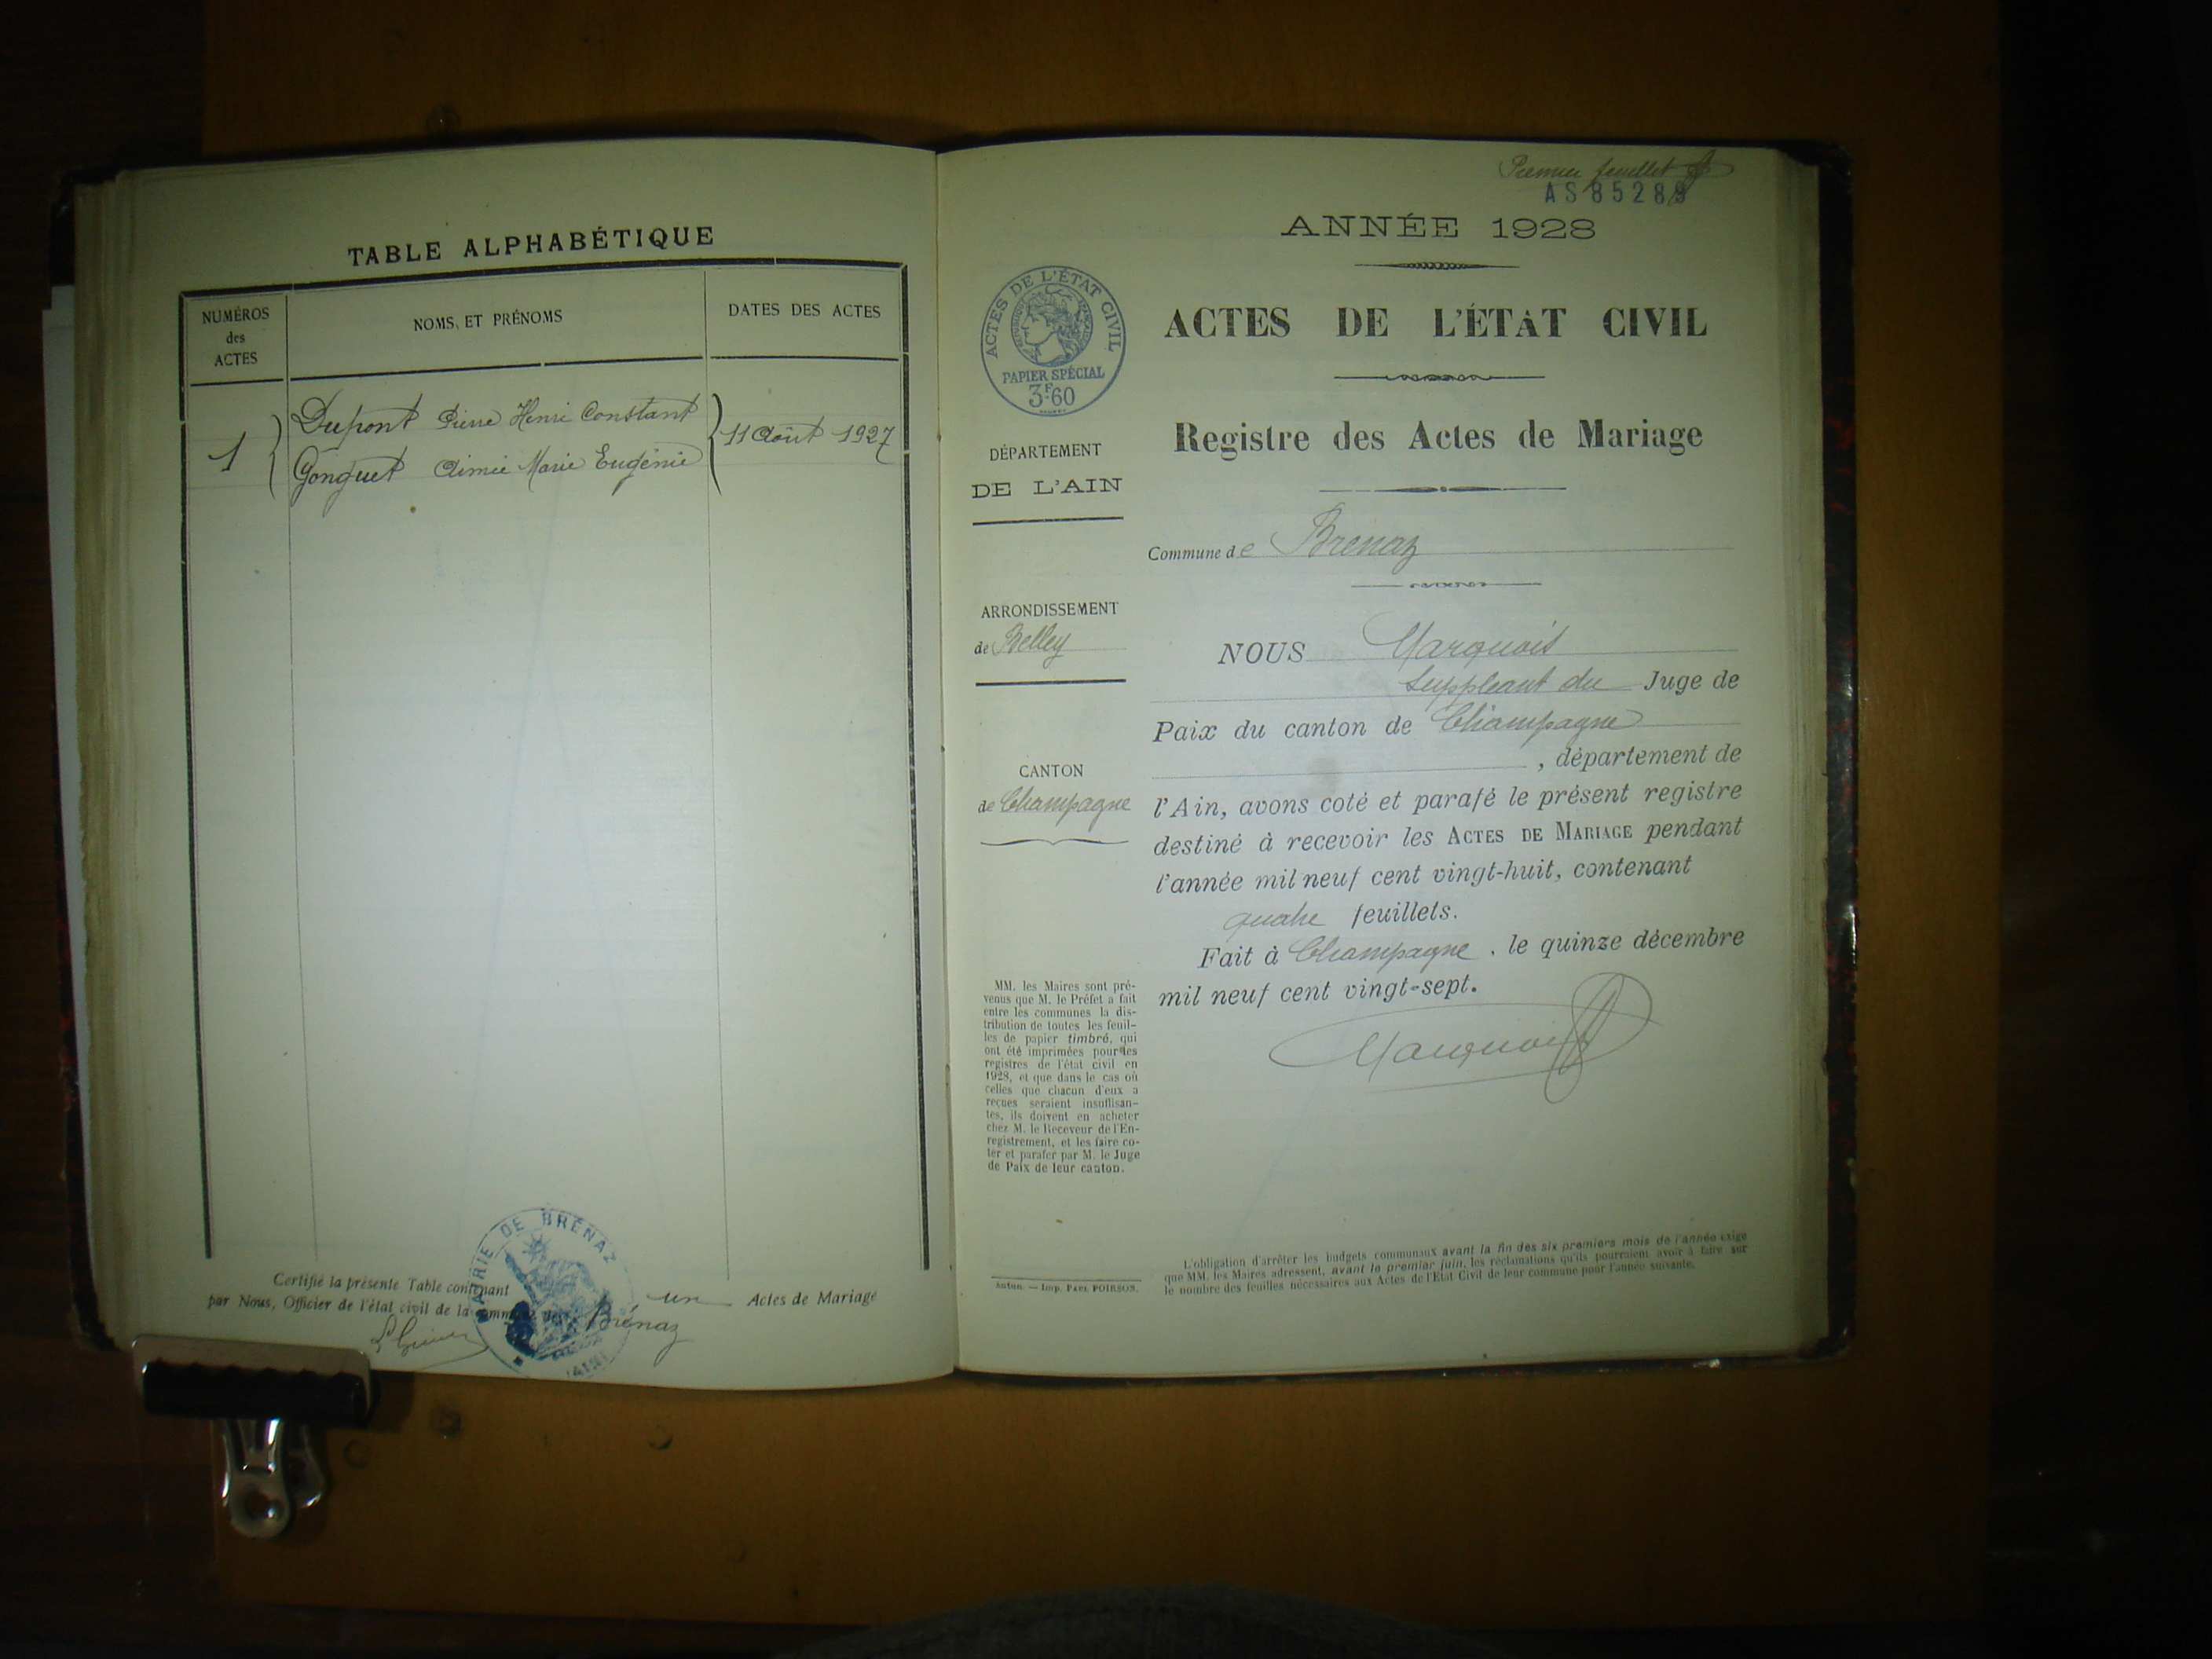 TABLE ALPHABÉTIQUE
NUMÉROS
des
ACTES
NOMS ET PRÉNOMS
DATES DES ACTES
1
Dupont Pierre Henri Constant
Gonguet Aimée Marie Eugénie
11 Août 1927
Certifié la présente Table contenant un Actes de Mariage
par Nous, Officier de l'état civil de la commune de Brénaz
MAIRIE DE BRÉNAZ
(AIN)
Premier feuillet
AS 85289
ANNÉE 1928
ACTES DE L'ÉTAT CIVIL
PAPIER SPÉCIAL
3F60
ACTES DE L'ÉTAT CIVIL
Registre des Actes de Mariage
DÉPARTEMENT
DE L'AIN
Commune de Brenaz
ARRONDISSEMENT
de Belley
CANTON
de Champagne
NOUS Marquois
Suppleant du Juge de
Paix du canton de Champagne
, département de
l'Ain, avons coté et parafé le présent registre
destiné à recevoir les ACTES DE MARIAGE pendant
l'année mil neuf cent vingt-huit, contenant
quatre feuillets.
Fait à Champagne, le quinze décembre
mil neuf cent vingt-sept.
Marquois
MM. les Maires sont pré-
venus que M. le Préfet a fait
entre les communes la dis-
tribution de toutes les feuil-
les de papier timbré, qui
ont été imprimées pour les
registres de l'état civil en
1928, et que dans le cas où
celles que chacun d'eux a
reçues seraient insuffisan-
tes, ils doivent en acheter
chez M. le Receveur de l'En-
registrement, et les faire co-
ter et parafer par M. le Juge
de Paix de leur canton.
Autun. — Imp. PAUL POIRSON.
L'obligation d'arrêter les budgets communaux avant la fin des six premiers mois de l'année exige
que MM. les Maires adressent, avant le premier juin, les réclamations qu'ils pourraient avoir à faire sur
le nombre des feuilles nécessaires aux Actes de l'État Civil de leur commune pour l'année suivante.